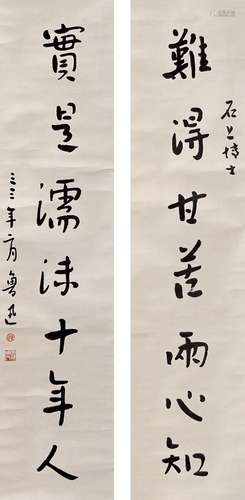 石上博士
難得甘苦兩心知
實是濡沫十年人
三三年二月魯迅